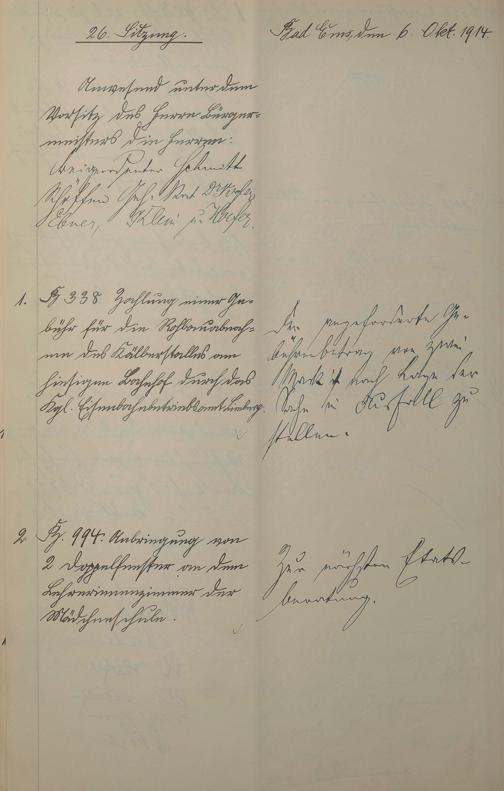 26. Sitzung.
Bad Ems, den 6. Okt. 1914.
Anwesend unter dem
Vorsitz des Herrn Bürger-
meisters die Herren:
Beigeordneter Schmitt
Schöffen Geh. Rat Dr.
Ebner, Klein u.
1. 338. Zahlung einer Ge-
bühr für die Rohbauabnah-
me des Kälberstalles am
hiesigen Bahnhof durch das
Kgl. Eisenbahnbetriebsamt Limburg.
Der angeforderte Ge-
bührenbetrag von zwei
Mark ist nach Lage der
Sache in Ausfall zu
stellen.
2. 994. Anbringung von
2 Doppelfenster an dem
Lehrerinnenzimmer der
Mädchenschule.
Zur nächsten Etats-
beratung.